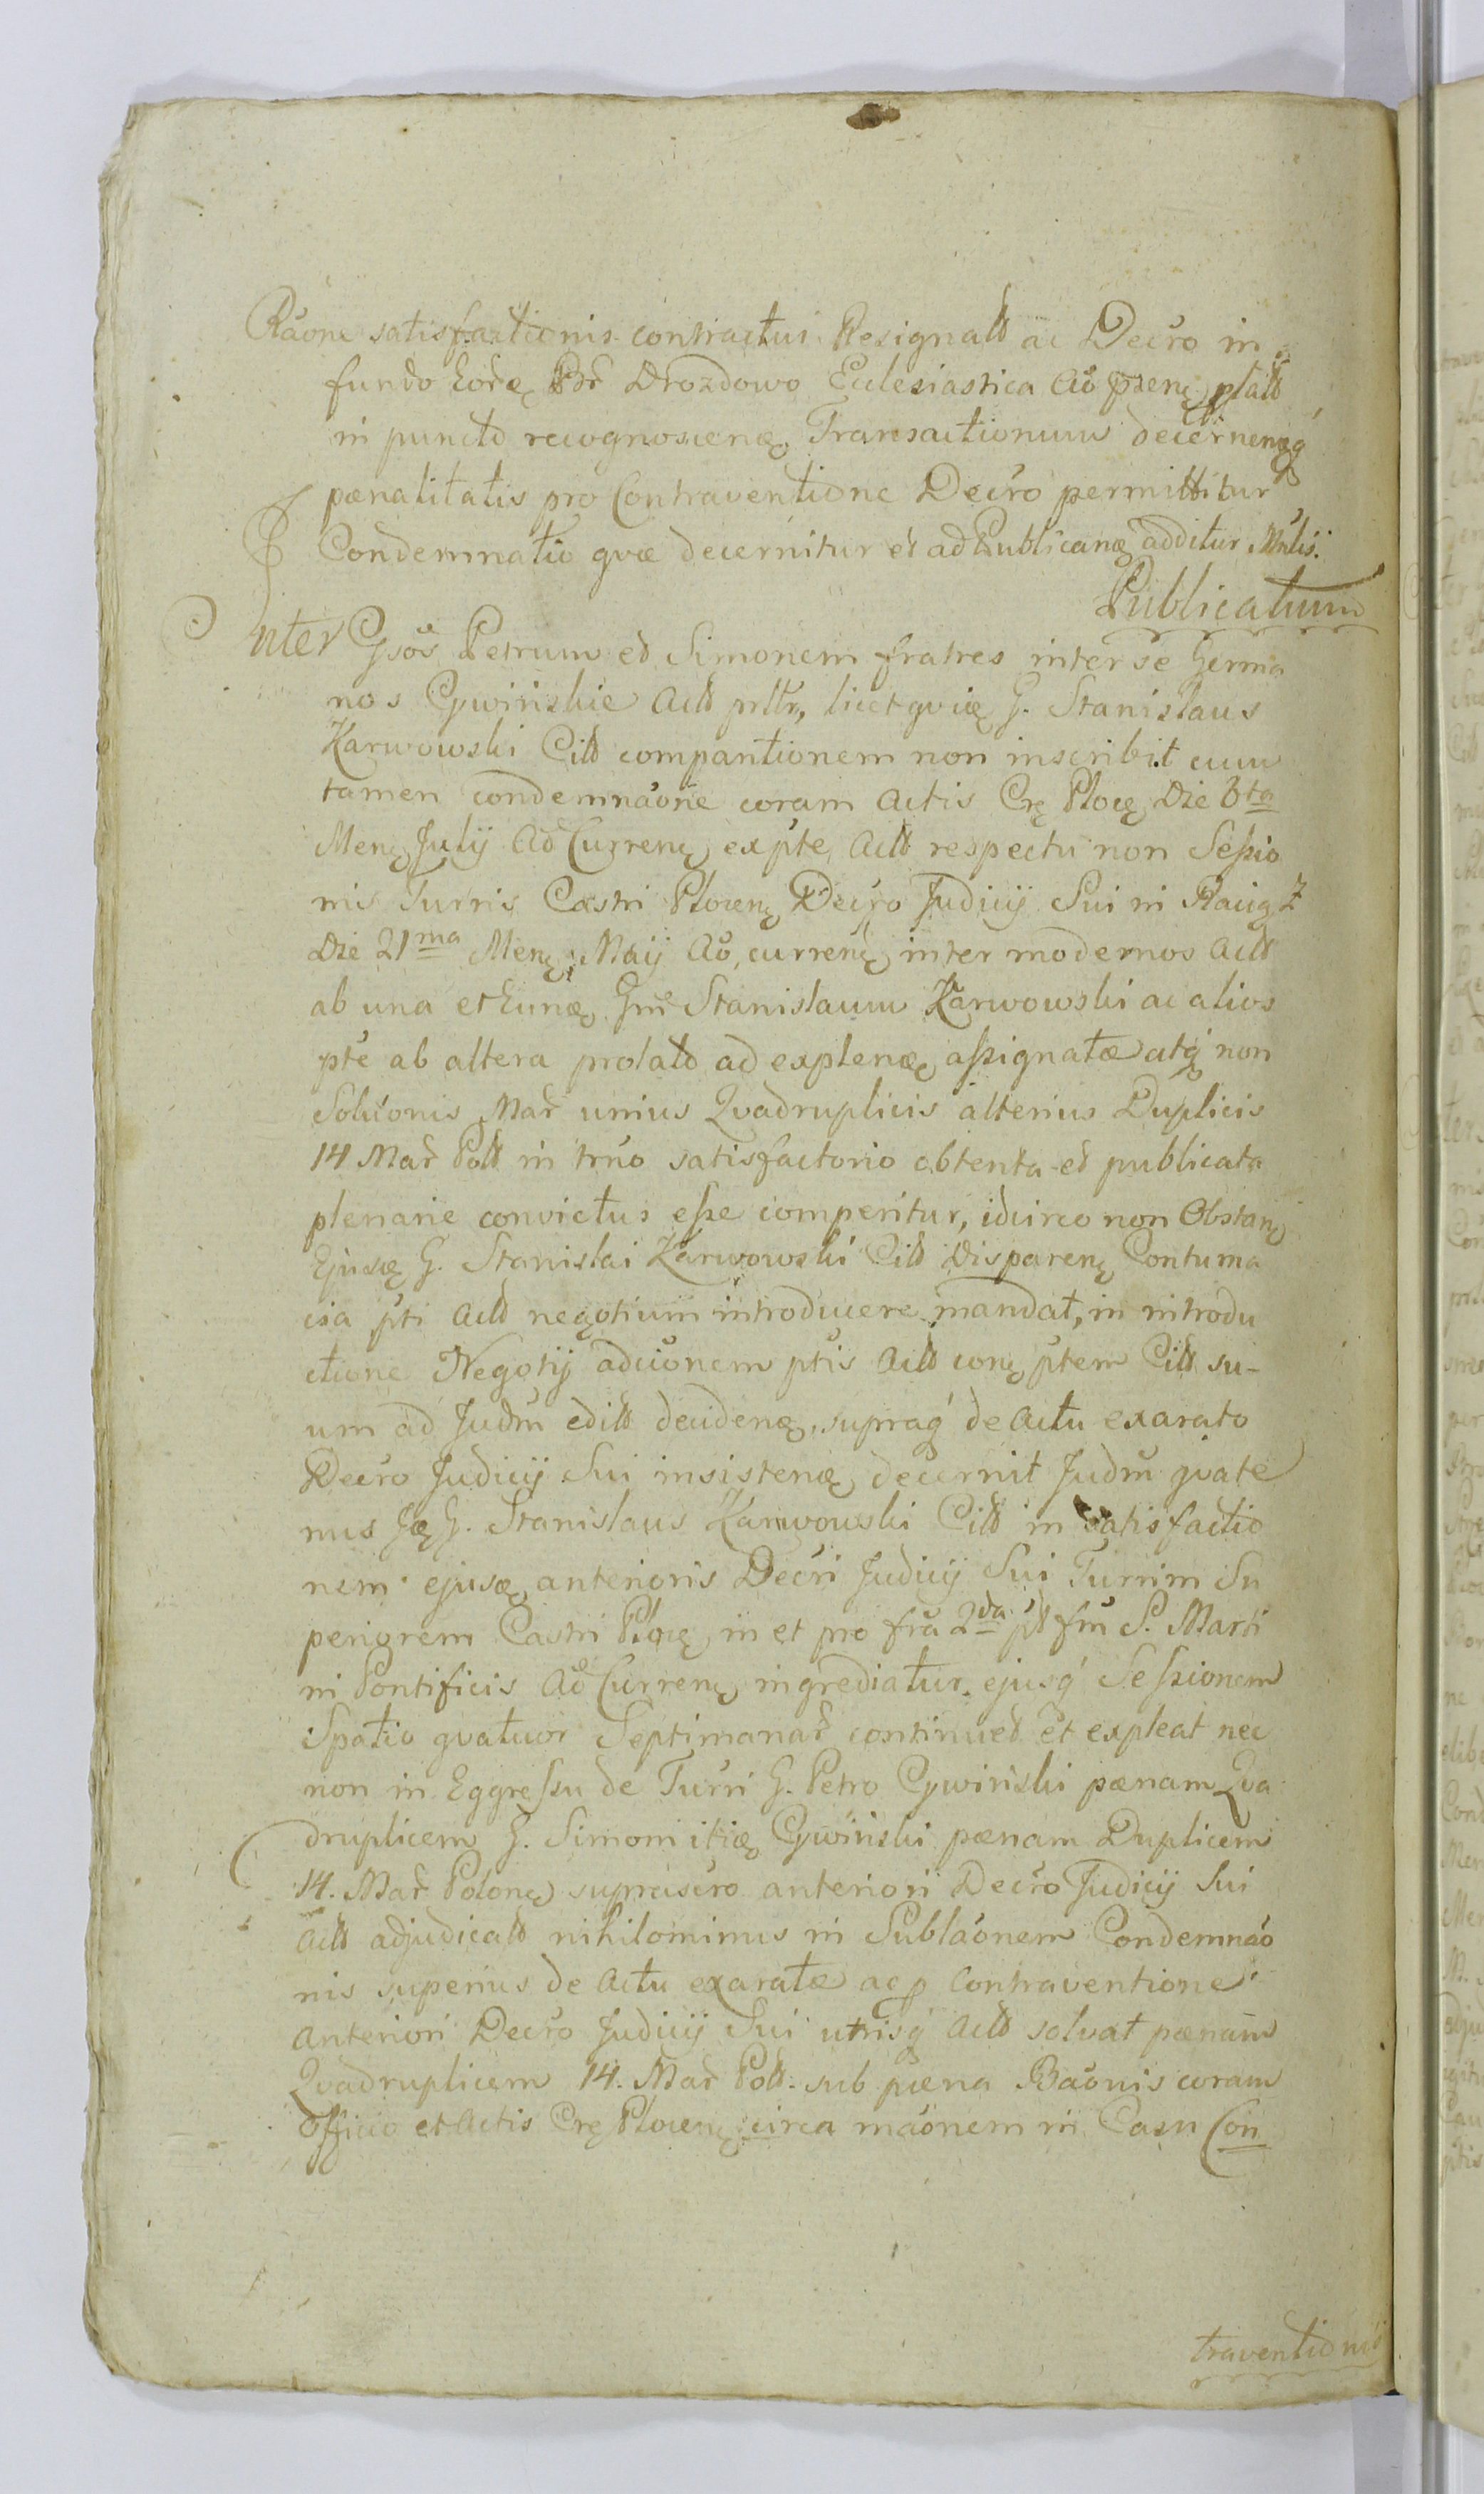 Raõne satisfactionis contractui Resignatt ac Decro in
fundo eorę Br̃ Drozdowo Ecclesiastica Aõ pręnę platt
in puncto recognoscenę Transactionum decernenęq́
pænalitatis pro Contraventione Decro permittitur
Condemnatio qvæ decernitur et ad Publicanę additur Mń́lis.
Publicatum
Inter Gsõs Petrum et Simonem fratres inter se Germa
nos Cywińskie Actt prltr, licet qvię G. Stanislaus
Karwowski Citt compantionem non inscribit cum
tamen condemnaõne coram Actis Crę Plocę Die 6ta
Menę Julij Aõ Currenę ex pte Actt respectu non Seßio
nis Turris Castri Plocenę Decro Judicij Sui in Raciąz
Die 21ma Menę Maij Aõ currenę inter modernos Actt
ab una et Eunę Gm̃ Stanislaum Karwowski ac alios
pte ab altera prolato ad explenę aßignatæ atq́ non
Solũonis Mar̃ unius Qvadruplicis alterius Duplicis
14 Mar̃ Poll in trño satisfactorio obtenta et publicata
plenarie convictus eße comperitur, idcirco non Obstanę
Ejusę G. Stanislai Karwowski Citt Disparenę Contuma
cia pti Actt negotium introducere mandat, in introdu
ctione Negotij adcionem ptis Actt conę ptem Citt su-
um ad Judm̃ editt decidenę, supraq́ de Actu exarato
Decro Judicij Sui insistenę decernit Judm̃ qvate
nus Ję G. Stanislaus Karwowski Citt in satisfactio
nem ejusę anterioris Decri Judicij Sui Turrim Su
periorem Castri Plocę in et pro fra 2da pt fm̃ S. Marti
ni Pontificis Aõ Currenę ingrediatur ejusq́ Seßionem
Spatio qvatuor Septimanar̃ continuet et expleat nec
non in Eggreßu de Turri G. Petro Cywiński pænam Qva
druplicem G. Simoni itię Cywiński pænam Duplicem
14. Mar̃ Polonę suprascro anteriori Decro Judicij Sui
Actt adjudicatt nihilominus in Sublaõnem Condemnaõ
nis superius de Actu exaratæ ac p Contraventione
Anteriori Decro Judicij Sui utrisq́ Actt solvat pænam
Qvadruplicem 14. Mar̃ Poll. sub pæna Baõnis coram
Officio et Actis Crę Plocenę circa maõnem in Casu Con
traventionis